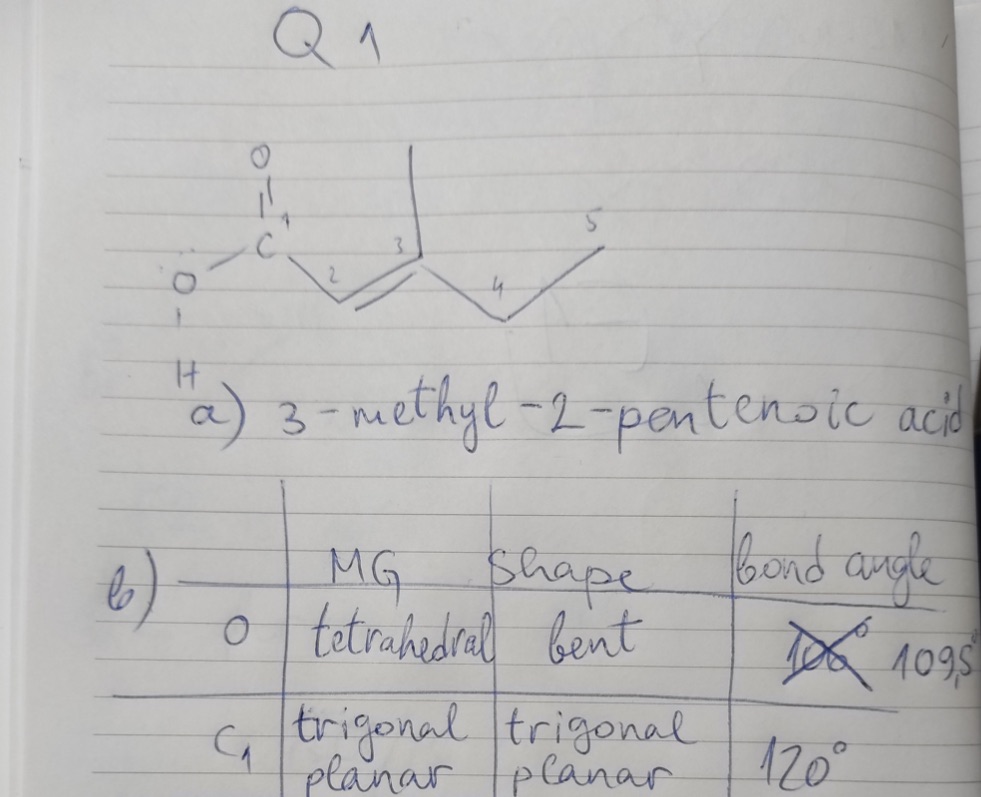 Q 1
O
C 1
O
H
2 3 4 5
a) 3-methyl-2-pentenoic acid
b) MG shape bond angle
O tetrahedral bent 109,5°
C1 trigonal planar trigonal planar 120°